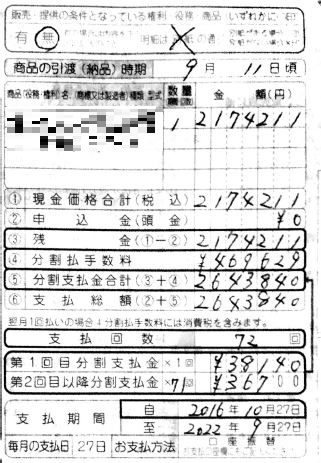 販売・提供の条件となっている権利・役務・商品 いずれかに 印
有 無
商品の引渡(納品)時期 9月 11日頃
商品(役務・権利)名 (商標又は製造者) 種類 型式 数量 金 額(円)
1 2174211
① 現金価格合計(税 込) 2174211
② 申込金(頭金) ¥0
③ 残 金(①-②) 2174211
④ 分割払手数料 ¥469629
⑤ 分割支払金合計(③+④) 2643840
⑥ 支払総額(②+⑤) 2643840
翌月1回払いの場合④分割手数料には消費税を含みます。
支払回数 72 回
第1回目分割支払金×1回 ¥38140
第2回目以降分割支払金×71回 ¥36700
支払期間 自 2016年10月27日
至 2022年9月27日
毎月の支払日 27日 お支払方法 口座振替